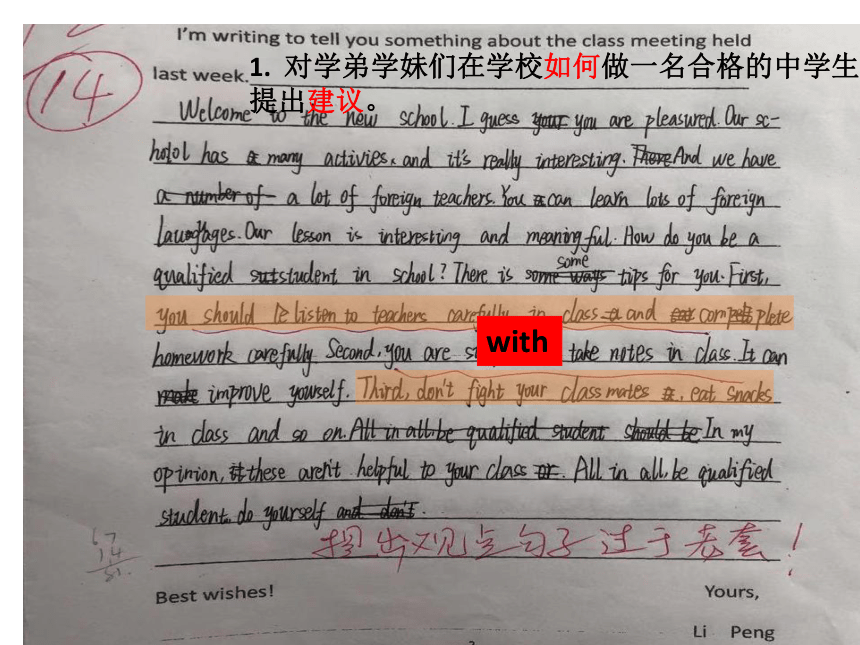 I'm writing to tell you something about the class meeting held
14
last week.
1. 对学弟学妹们在学校如何做一名合格的中学生
提出建议。
Welcome to the new school. I guess you are pleasured. Our sc-
hool has many activies, and it's really interesting. And we have
a number of a lot of foreign teachers. You can learn lots of foreign
laugages. Our lesson is interesting and meaningful. How do you be a
some
qualified student in school? There is some ways tips for you. First,
you should listen to teachers carefully in class and complete
with
homework carefully Second, you are take notes in class. It can
make improve yourself. Third, don't fight your classmates, eat snacks
in class and so on. All in all. be qualified student should be In my
opinion, these aren't helpful to your class or. All in all, be qualified
student. do yourself and don't.
提出观点句子过于老套!
67
14
81
Best wishes!
Yours,
Li Peng